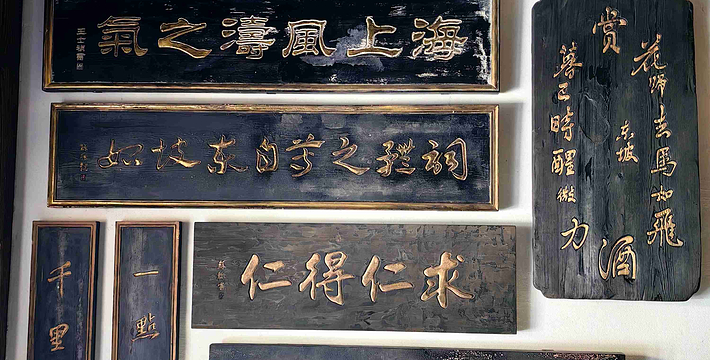 海上風濤之氣
詞之自東坡
賞花歸去馬如飛
酒力微醒時已暮
東坡
求仁得仁
一點
千里